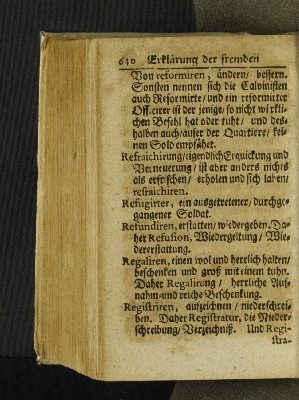 630 Erklärung der fremden
Von reformiren, ändern/ bessern.
Sonsten nennen sich die Calvinisten
auch Reformirte/ und ein reformirter
Officirer ist der jenige/ so nicht wirkli-
chen Befehl hat oder tuht/ und des-
halben auch/ auser der Quartiere/ kei-
nen Sold empfähet.
Refraichirung/ eigendlich Erquickung und
Verneuerung/ ist aber anders nichts
als erfrischen/ erholen und sich laben/
refraichiren.
Refugirter, ein ausgetretener/ durchge-
gangener Soldat.
Refundiren, erstatten/ wiedergeben. Da-
her Refusion, Wiedergeltung/ Wie-
dererstattung.
Regaliren, einen wol und herrlich halten/
beschenken und groß mit einem tuhn.
Daher Regalirung/ herrliche Auf-
nahm und reiche Beschenkung.
Registriren, aufzeichnen/ niederschrei-
ben. Daher Registratur, die Nieder-
schreibung/ Verzeichniß. Und Regi-
stra-